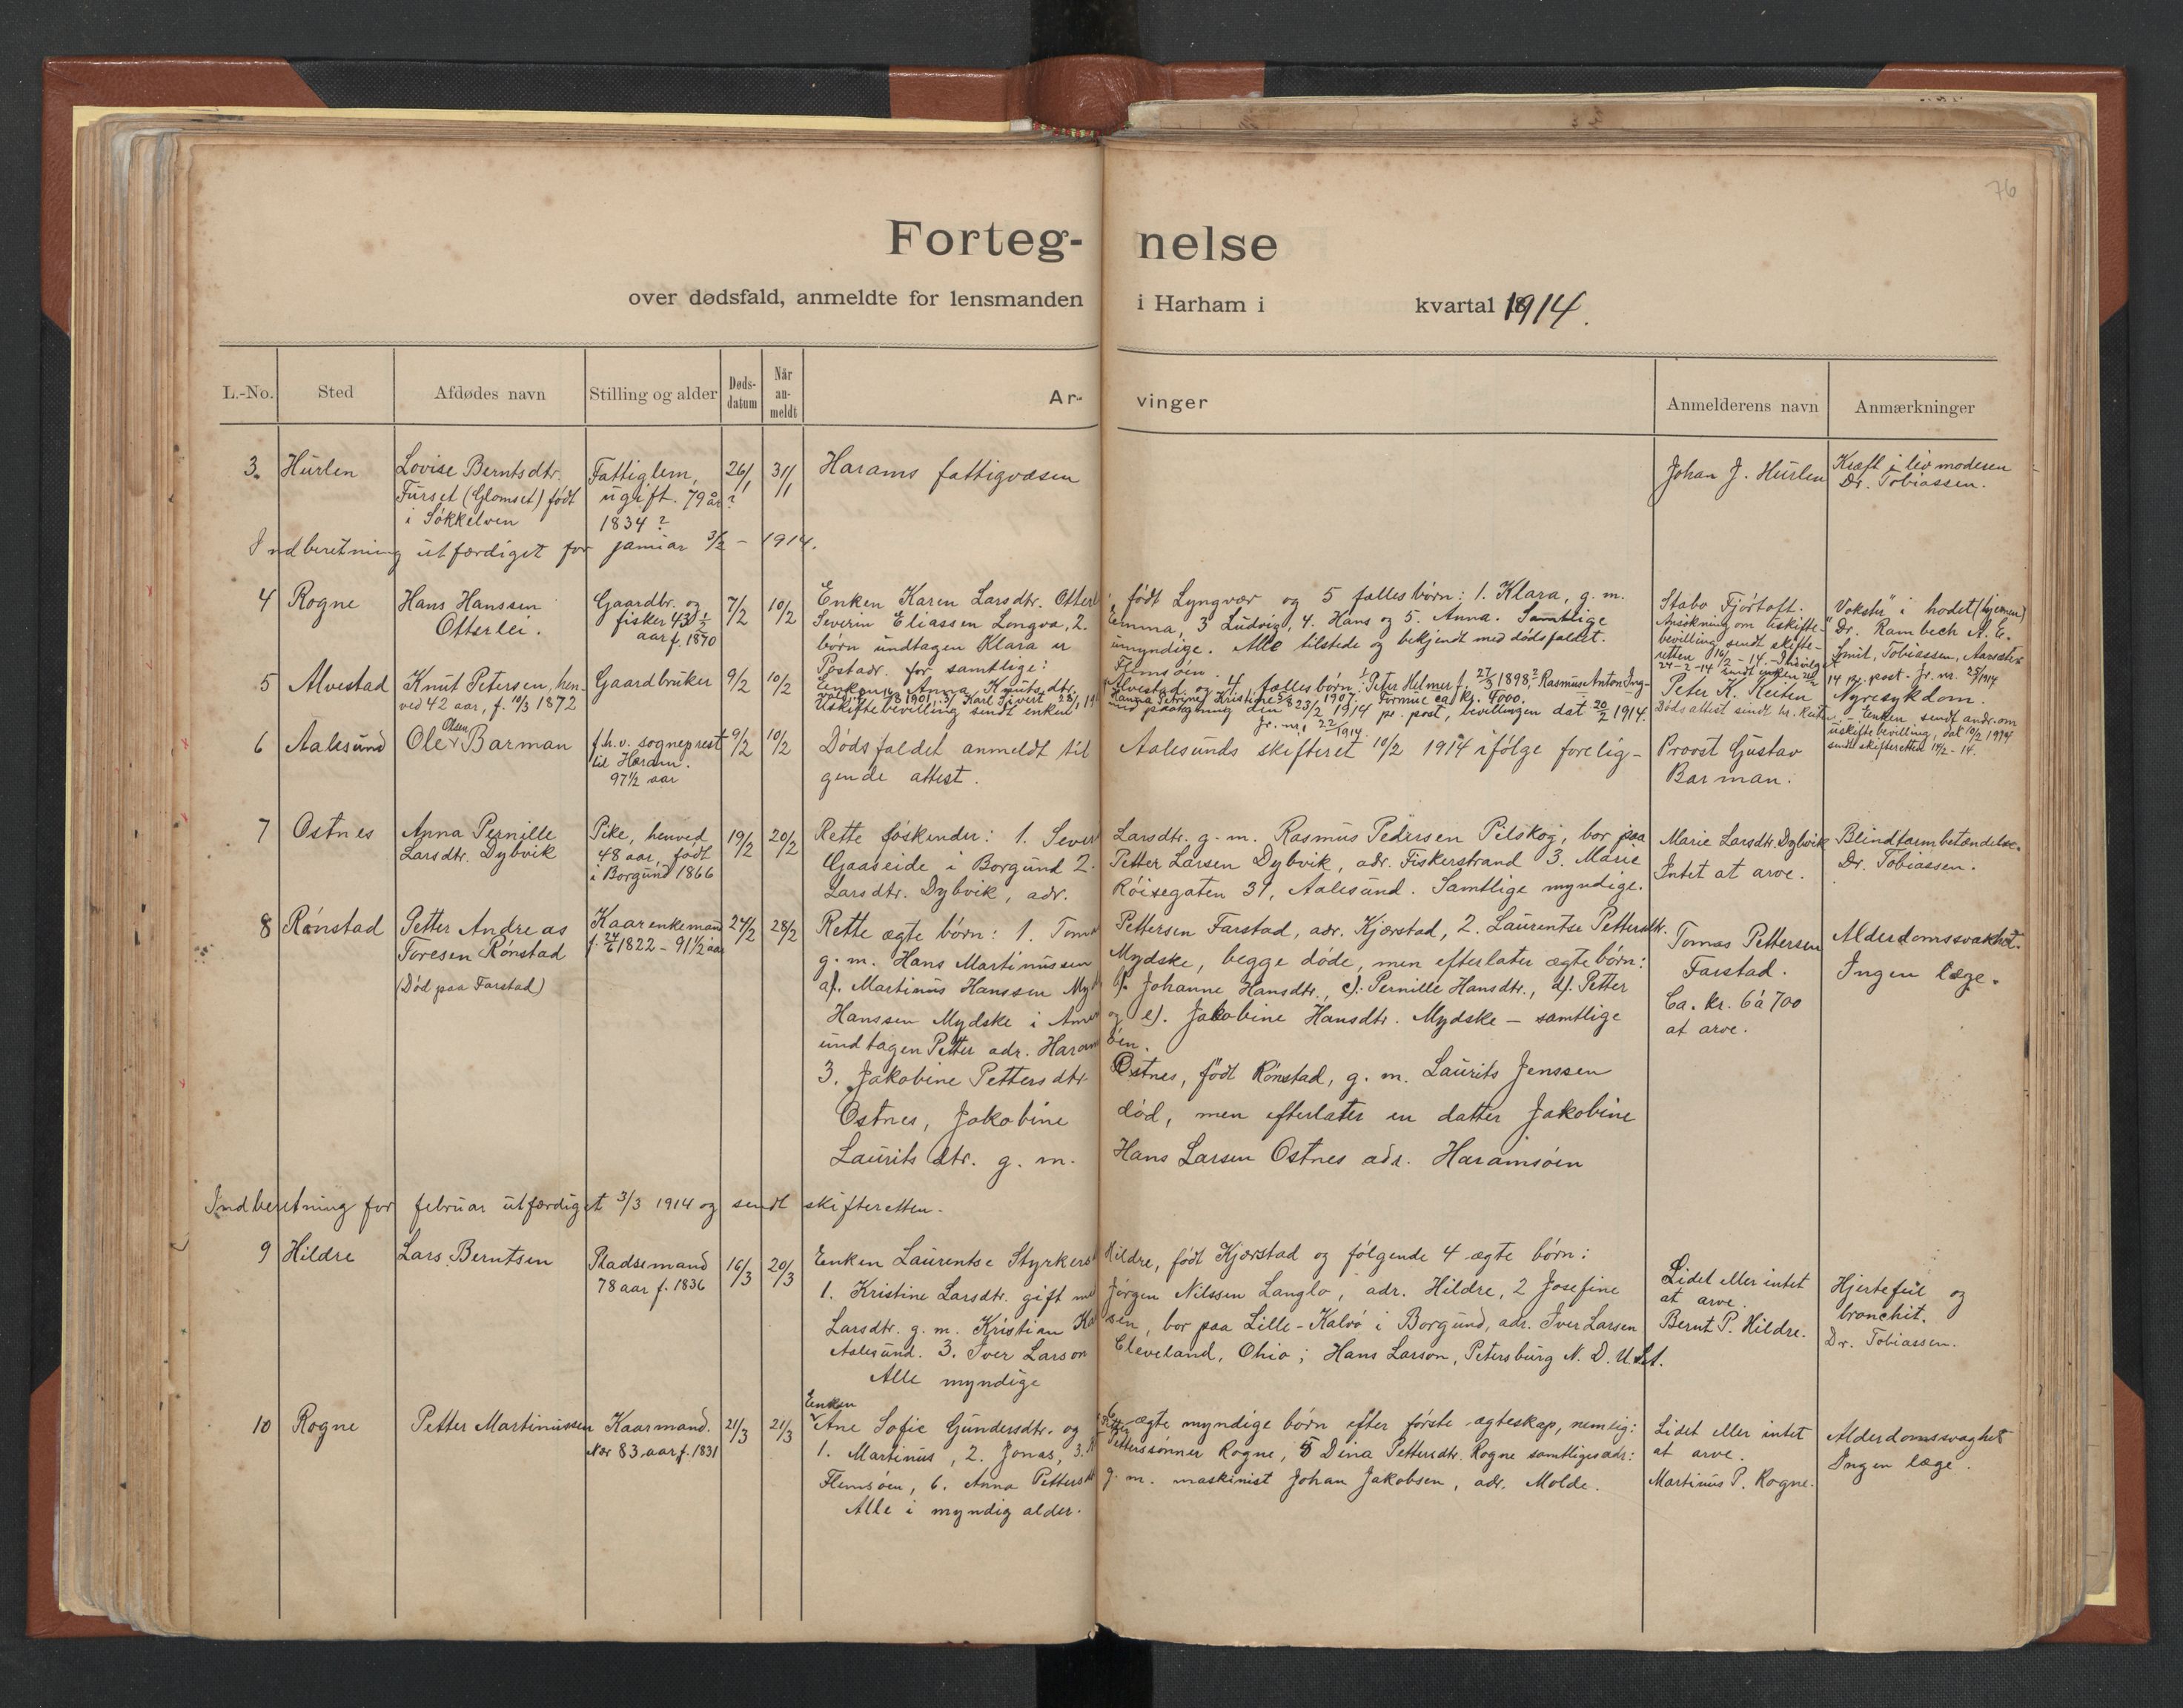 76
Forteg- nelse
over dødsfald, anmeldte for lensmanden i Harham i kvartal 1914.
L.-No. Sted Afdødes navn Stilling og alder Døds-datum Når an-meldt Ar- vinger Anmelderens navn Anmærkninger
3. Hurlen Lovise Berntsdtr. Fattiglem, 26/1 31/1 Harams fattigvæsen Johan J. Hurlen Kræft i livmoderen
Furset (Glomset) født ugift. 79 år ? Dr. Tobiassen.
i Søkkelven 1834 ?
Indberetning utfærdiget for januar 3/2 - 1914.
4 Rogne Hans Hanssen Gaardbr. og 7/2 10/2 Enken Karen Larsdtr. Otterl født Lyngvær og 5 fælles børn: 1. Klara, g. m. Stabo Fjørtoft. "Vokster" i hodet (hjernen)
Otterlei. fisker 43 1/2 Severin Eliassen Longva, 2. Emma, 3 Ludvig, 4. Hans og 5. Anna. Samtlige Ansøkning om uskifte- Dr. Rambech A. E.
aar f. 1870 børn undtagen Klara er umyndige. Alle tilstede og bekjendt med dødsfaldet. bevilling sendt skifte-
Postadr. for samtlige: Flemsøen. retten 16/2 - 14.
5 Alvestad Knut Petersen, hen- Gaardbruker 9/2 10/2 Enken Anna Knutsdtr. Alvestad og 4 fælles børn: 1. Peter Helmer f. 27/3 1898, 2. Rasmus Anton Ing- Peter K. Meiten Nyresykdom.
ved 42 aar, f. 11/3 1872 1901, 3. Karl Sivert Hanna Petrine Kristine 1907. Formue ca kr. 4000. Dødsattest sendt Enken sendt andr. om
Uskiftebevilling sendt enken med paategning den 23/2 1914 pr. post, bevillingen dat 20/2 1914. uskiftebevilling, dat 10/2 1914
Jr. nr. 22/1914. sendt skifteretten 14/2 - 14.
6 Aalesund Ole Olsen Barman f.h.v. sogneprest 9/2 10/2 Dødsfaldet anmeldt til Aalesunds skifteret 10/2 1914 ifølge forelig- Provst Gustav
til Haram. gende attest. Barman.
97 1/2 aar
7 Ostnes Anna Pernille Pike, henved 19/2 20/2 Rette søskender: 1. Sever Larsdtr. g. m. Rasmus Pedersen Pilskog, bor paa Marie Larsdtr. Dybvik Blindtarmbetændelse.
Larsdtr. Dybvik 48 aar, født Gaaseide i Borgund 2. Petter Larsen Dybvik, adr. Fiskerstrand 3. Marie Intet at arve. Dr. Tobiassen.
i Borgund 1866 Larsdtr. Dybvik, adr. Røisegaten 31, Aalesund. Samtlige myndige.
8 Rønstad Petter Andreas Kaarenkemand 27/2 28/2 Rette ægte børn: 1. Tomas Pettersen Farstad, adr. Kjærstad, 2. Laurentse Pettersdtr. Tomas Pettersen Alderdomssvakhet.
Toresen Rønstad f. 24/6 1822 - 91 1/2 aar g. m. Hans Martinussen Mydske, begge døde, men efterlater ægte børn: Farstad. Ingen læge.
(Død paa Farstad) a). Martinus Hanssen Myd b). Johanne Hansdtr., c). Pernille Hansdtr., d). Petter Ca. kr. 6 à 700
Hanssen Mydske i Amer og e). Jakobine Hansdtr. Mydske - samtlige at arve.
undtagen Petter adr. Harams øen.
3. Jakobine Pettersdtr. Ostnes, født Rønstad, g. m. Laurits Jenssen
Ostnes, Jakobine død, men efterlater en datter Jakobine
Lauritsdtr. g. m. Hans Larsen Ostnes adr. Haramsøen
Indberetning for februar utfærdiget 3/3 1914 og sendt skifteretten.
9 Hildre Lars Berntsen Pladsemand 16/3 20/3 Enken Laurentse Styrkers Hildre, født Kjærstad og følgende 4 ægte børn: Lidet eller intet Hjertefeil og
78 aar f. 1836 1. Kristine Larsdtr. gift med Jørgen Nilssen Langlo, adr. Hildre, 2 Josefine at arve. bronchit.
Larsdtr. g. m. Kristian Ka sen, bor paa Lille-Kalvø i Borgund, adr. Iver Larsen Bernt P. Hildre. Dr. Tobiassen.
Aalesund. 3. Iver Larson Cleveland, Ohio; Hans Larson, Petersburg N. D. U.S.A.
Alle myndige
10 Rogne Petter Martinussen Kaarmand. 21/3 21/3 Enken Ane Sofie Gundersdtr. og 6 ægte myndige børn efter første ægteskap, nemlig: Lidet eller intet Alderdomssvaghet
Nær 83 aar f. 1831 1. Martinus, 2. Jonas, 3. Petterssønner Rogne, 5 Dina Pettersdtr. Rogne samtliges adr: at arve. Ingen læge.
Flemsøen, 6. Anna Pettersdtr g. m. maskinist Johan Jakobsen, adr. Molde. Martinus P. Rogne.
Alle i myndig alder.